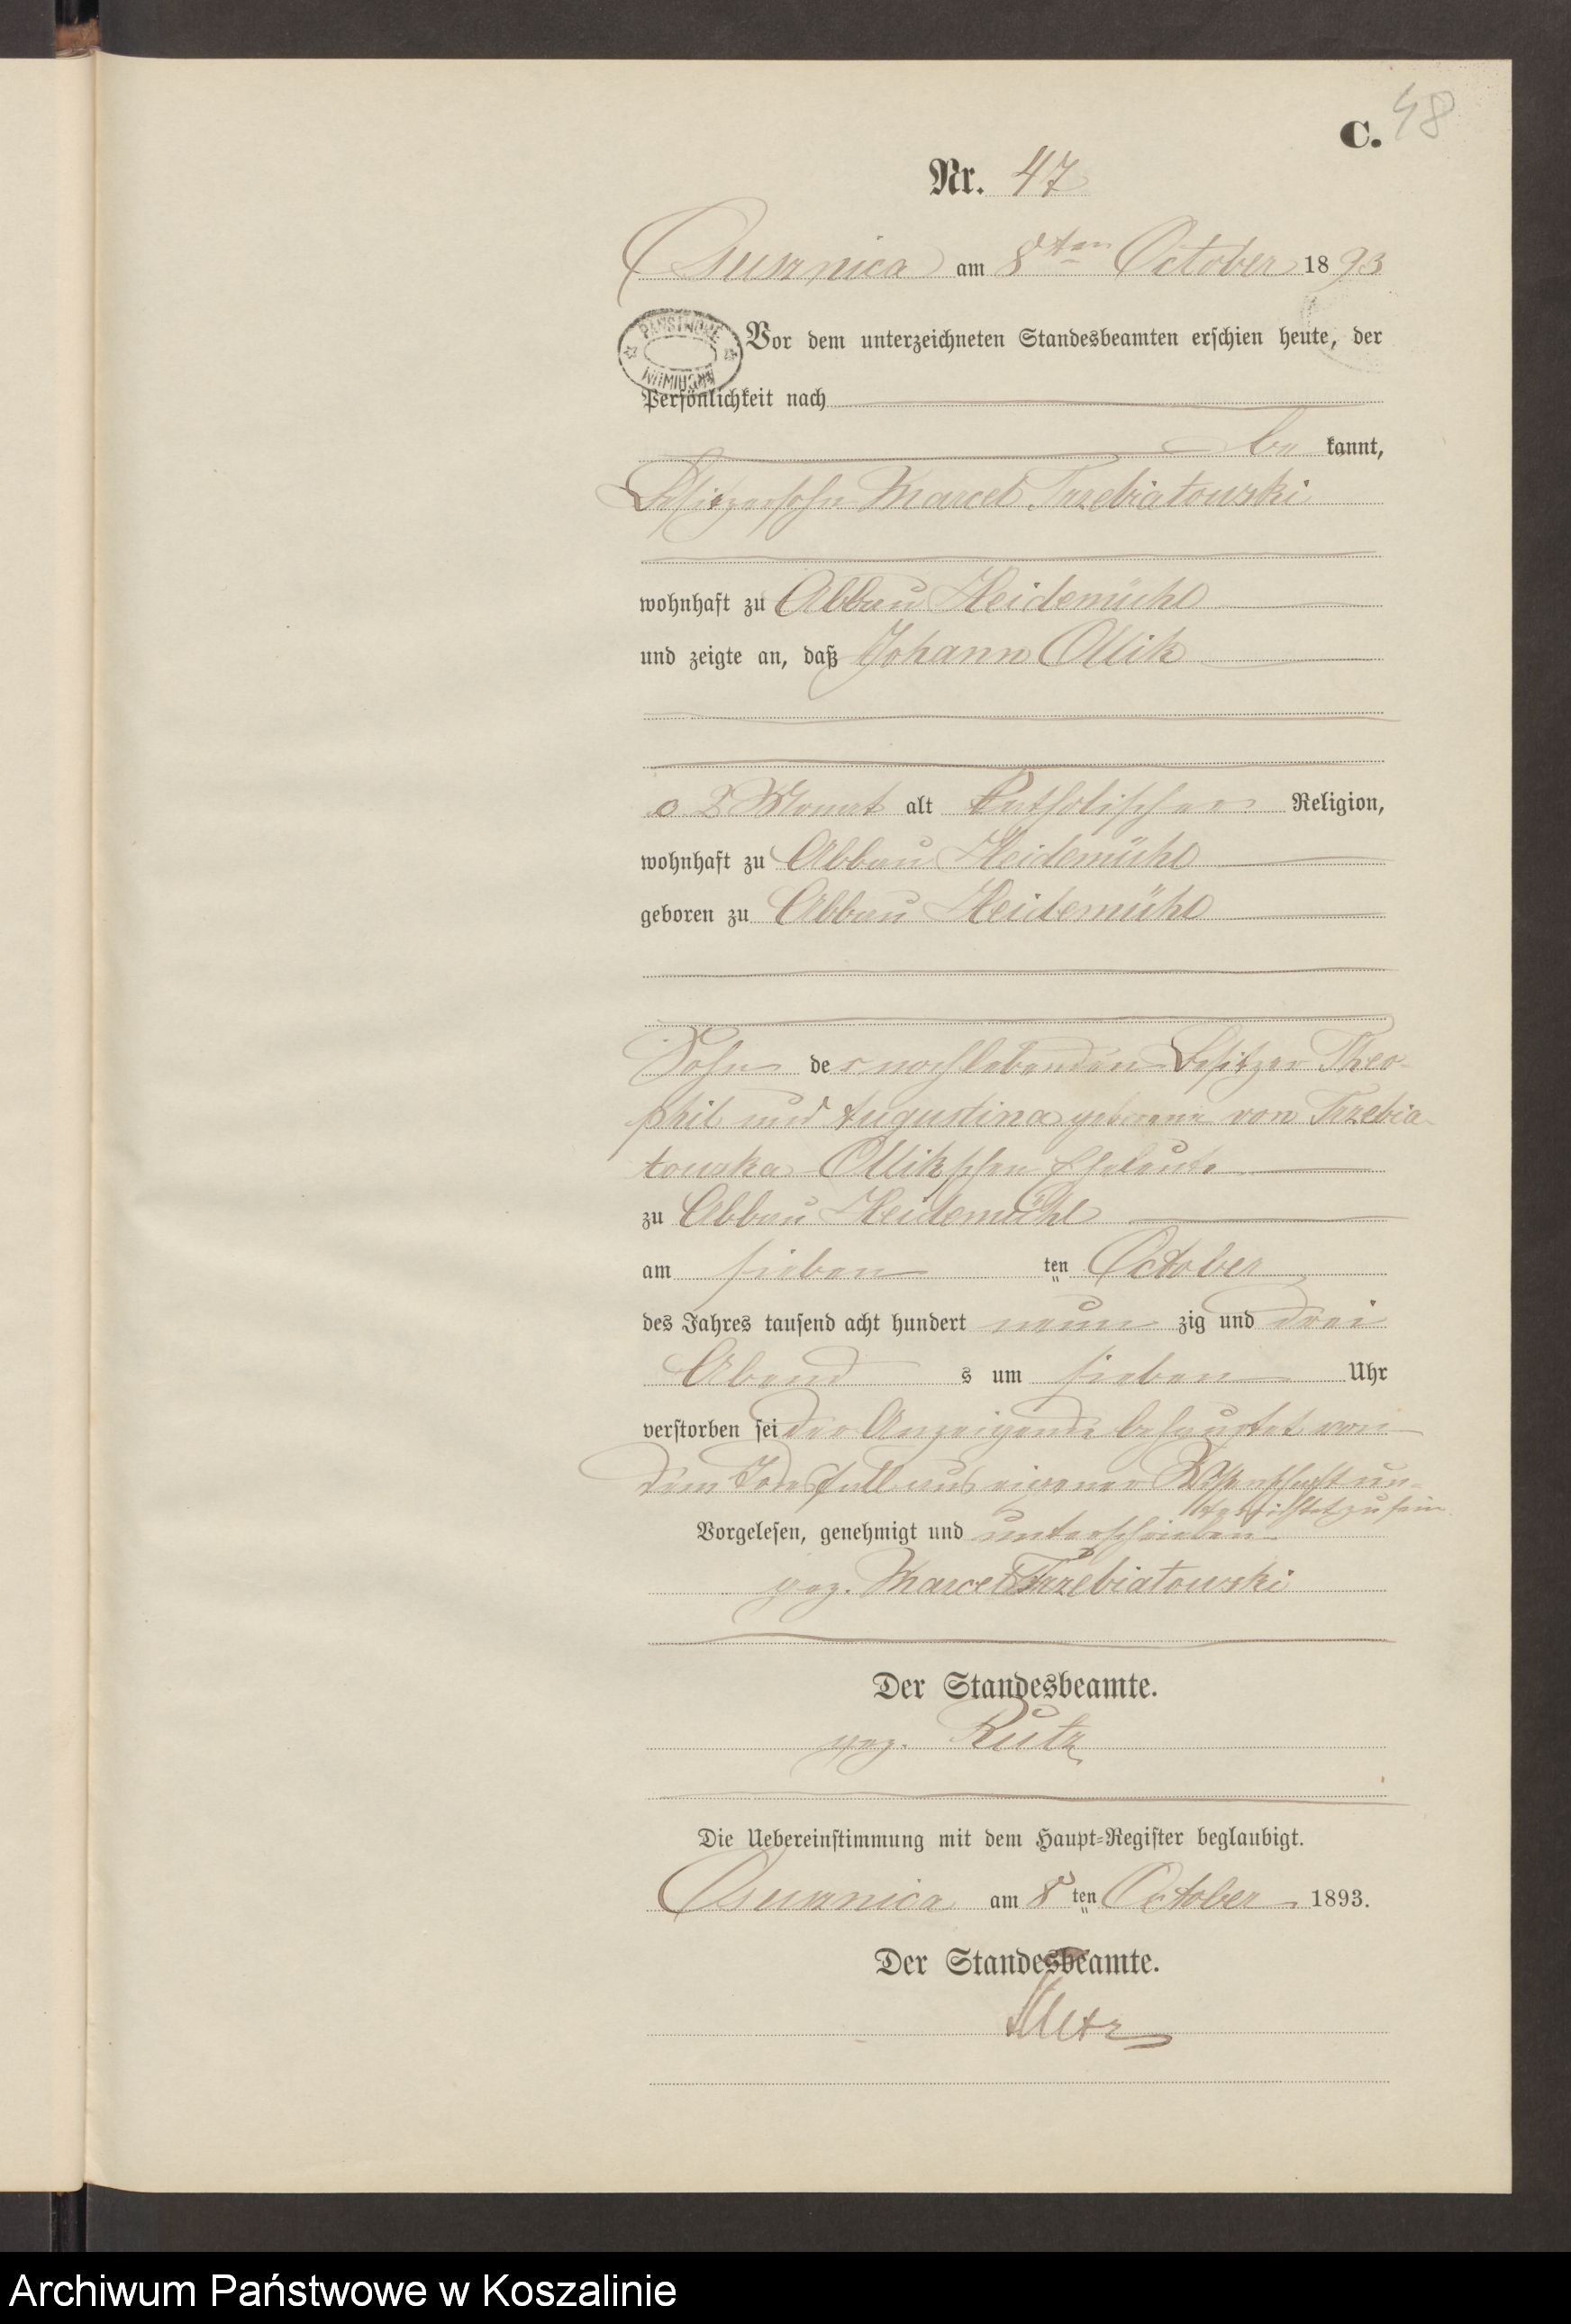 48
C.
Nr. 47
am 8ten October 1893
PAŃSTWOWE ARCHIWUM
Vor dem unterzeichneten Standesbeamten erschien heute, der
Persönlichkeit nach
be kannt,
Besitzersohn Marcel Trzebiatowski
wohnhaft zu Abbau Heidemühl
und zeigte an, daß Johann Ollik
2 Monat alt katholischer Religion,
wohnhaft zu Abbau Heidemühl
geboren zu Abbau Heidemühl
Sohn der noch lebenden Besitzer Theo-
phil und Augustina geborene von Trzebia-
towska Ollikschen Eheleute
zu Abbau Heidemühl
am sieben ten October
des Jahres tausend acht hundert neun zig und drei
Abend s um sieben Uhr
verstorben sei der Anzeigende behauptet von
dem Todesfall aus eigener Wissenschaft un-
terrichtet zu sein
Vorgelesen, genehmigt und unterschrieben
gez. Marcel Trzebiatowski
Der Standesbeamte.
gez. Rutz
Die Uebereinstimmung mit dem Haupt-Register beglaubigt.
am 8 ten October 1893.
Der Standesbeamte.
Archiwum Państwowe w Koszalinie